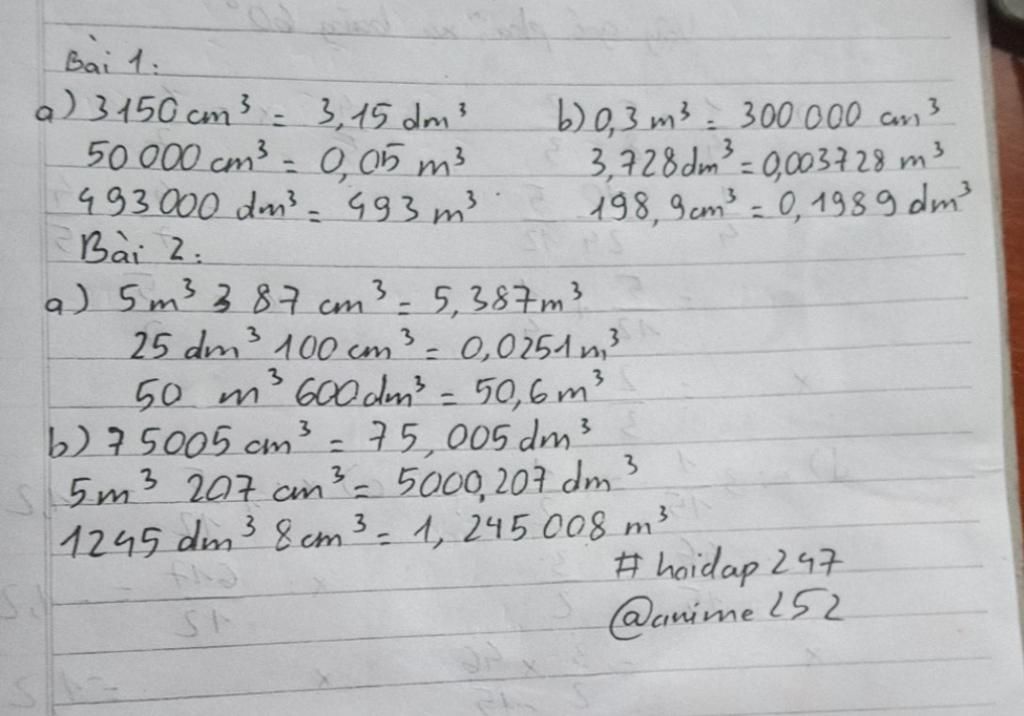 Bài 1:
a) 3150 cm³ = 3,15 dm³ b) 0,3 m³ = 300 000 cm³
50 000 cm³ = 0,05 m³ 3,728 dm³ = 0,003728 m³
493 000 dm³ = 493 m³ 198,9 cm³ = 0,1989 dm³
Bài 2:
a) 5 m³ 387 cm³ = 5,387 m³
25 dm³ 100 cm³ = 0,0251 m³
50 m³ 600 dm³ = 50,6 m³
b) 75005 cm³ = 75,005 dm³
5 m³ 207 cm³ = 5000,207 dm³
1245 dm³ 8 cm³ = 1,245 008 m³
# hoidap 247
@anime 252